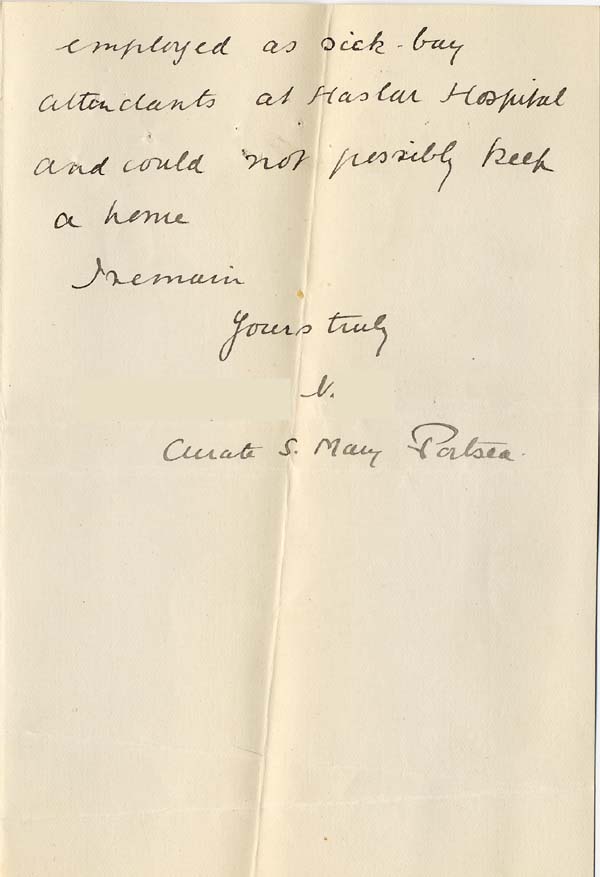 employed as sick-bay
attendants at Haslar Hospital
and could not possibly keep
a home
I remain
Yours truly
V.
Curate S. Mary Portsea.